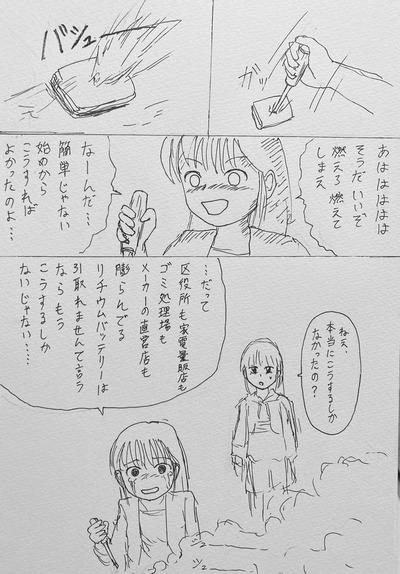 ガッ
バシュー
あはははははは
そうだいいぞ
燃えろ燃えて
しまえ
なーんだ…
簡単じゃない
始めから
こうすれば
よかったのよ…
ねえ、
本当にこうするしか
なかったの？
…だって
区役所も家電量販店も
ゴミ処理場も
メーカーの直営店も
膨らんでる
リチウムバッテリーは
引取れませんて言う
ならもう
こうするしか
ないじゃない……
シュー
シュー